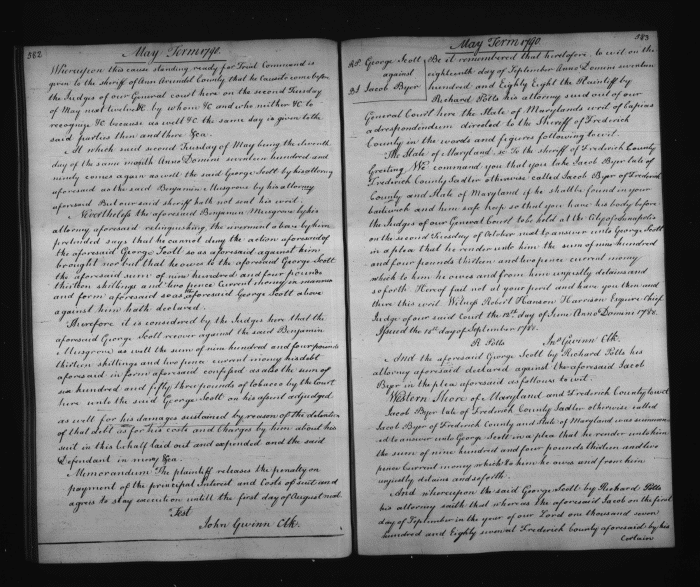 382
May Term 1790.
Whereupon this cause standing ready for Trial Command is
given to the sheriff of Ann Arundel County that he Cause to come before
the Judges of our General court here on the second Tuesday
of May next twelve &c by whom &c and who neither &c to
recognize &c because as well &c the same day is given to the
said parties then and there &ca.
At which said second Tuesday of May being the eleventh
day of the same month Anno Domini seventeen hundred and
ninety comes again as well the said George Scott by his attorney
aforesaid as the said Benjamin Musgrove by his attorney
aforesaid But our said sheriff hath not sent his writ.
Nevertheless the aforesaid Benjamin Musgrove by his
attorney aforesaid relinquishing the averment above by him
pretended says that he cannot deny the action aforesaid of
the aforesaid George Scott so as aforesaid against him
brought nor but that he owes to the aforesaid George Scott
the aforesaid sum of nine hundred and four pounds
thirteen shillings and two pence Current money in manner
and form aforesaid so as the aforesaid George Scott above
against him hath declared.
Therefore it is considered by the Judges here that the
aforesaid George Scott recover against the said Benjamin
Musgrove as well the sum of nine hundred and four pounds
thirteen shillings and two pence current money his debt
aforesaid in form aforesaid confessed as also the sum of
six hundred and fifty three pounds of tobacco by the Court
here unto the said George Scott on his assent adjudged
as well for his damages sustained by reason of the detention
of that debt as for his costs and Charges by him about his
suit in this behalf laid out and expended and the said
Defendant in mercy &ca.
Memorandum The plaintiff releases the penalty on
payment of the principal Interest and Costs of suit and
agrees to stay execution untill the first day of August next.
Test
John Gwinn Clk.
383
May Term 1790.
RP George Scott
against
Jacob Byer
Be it remembered that heretofore to wit on the
eighteenth day of September Anno Domini seventeen
hundred and Eighty Eight the Plaintiff by
Richard Potts his attorney sued out of our
General Court here the State of Marylands writ of Capias
ad respondendum directed to the Sheriff of Frederick
County in the words and figures following to wit.
The State of Maryland To the sheriff of Frederick County
Greeting We command you that you take Jacob Byer late of
Frederick County Sadler otherwise called Jacob Byer of Frederick
County and State of Maryland if he shall be found in your
bailiwick and him safe keep so that you have his body before
the Judges of our General Court to be held at the City of Annapolis
on the second Tuesday of October next to answer unto George Scott
in a plea that he render unto him the sum of nine hundred
and four pounds thirteen and two pence current money
which to him he owes and from him unjustly detains and
so forth Hereof fail not at your peril and have you then and
there this writ Witness Robert Hanson Harrison Esquire Chief
Judge of our said Court the day of June Anno Domini 1788.
Issued the 18th day of September 1788.
R Potts Jno Gwinn Clk.
And the aforesaid George Scott by Richard Potts his
attorney aforesaid declared against the aforesaid Jacob
Byer in the plea aforesaid as follows to wit.
Western Shore of Maryland and Frederick County to wit
Jacob Byer late of Frederick County Sadler otherwise called
Jacob Byer of Frederick County and State of Maryland was summon
ed to answer unto George Scott in a plea that he render unto him
the sum of nine hundred and four pounds thirteen and two
pence Current money which to him he owes and from him
unjustly detains and so forth.
And whereupon the said George Scott by Richard Potts
his attorney saith that whereas the aforesaid Jacob on the first
day of September in the year of our Lord one thousand seven
hundred and Eighty seven at Frederick County aforesaid by his
Certain